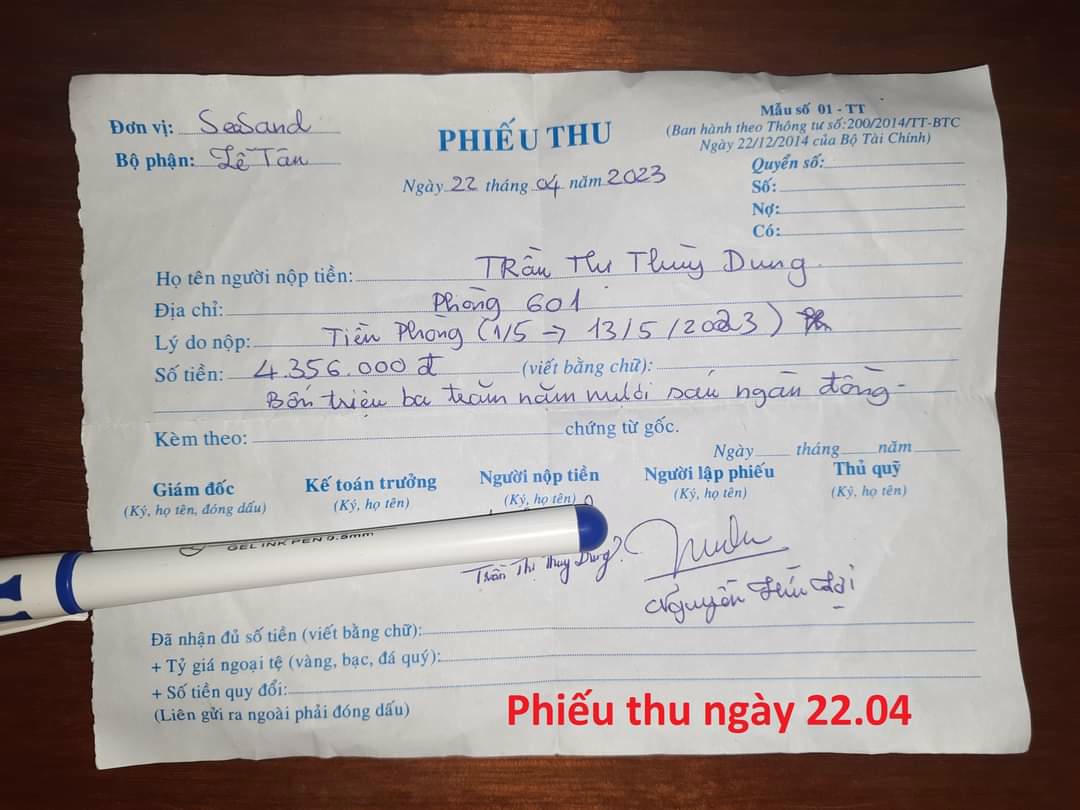 Đơn vị: SeaSand
Bộ phận: Lễ Tân
PHIẾU THU
Ngày 22 tháng 04 năm 2023
Mẫu số 01 - TT
(Ban hành theo Thông tư số:200/2014/TT-BTC
Ngày 22/12/2014 của Bộ Tài Chính)
Quyển số:
Số:
Nợ:
Có:
Họ tên người nộp tiền: TRần Thị Thùy Dung
Địa chỉ: Phòng 601
Lý do nộp: Tiền Phòng (1/5 → 13/5/2023)
Số tiền: 4.356.000 đ (viết bằng chữ):
Bốn triệu ba trăm năm mươi sáu ngàn đồng
Kèm theo: chứng từ gốc.
Ngày tháng năm
Giám đốc
(Ký, họ tên, đóng dấu)
Kế toán trưởng
(Ký, họ tên)
Người nộp tiền
(Ký, họ tên)
Người lập phiếu
(Ký, họ tên)
Thủ quỹ
(Ký, họ tên)
GEL INK PEN 0.5mm
Trần Thị Thùy Dung
Nguyễn
Đã nhận đủ số tiền (viết bằng chữ):
+ Tỷ giá ngoại tệ (vàng, bạc, đá quý):
+ Số tiền quy đổi:
(Liên gửi ra ngoài phải đóng dấu)
Phiếu thu ngày 22.04